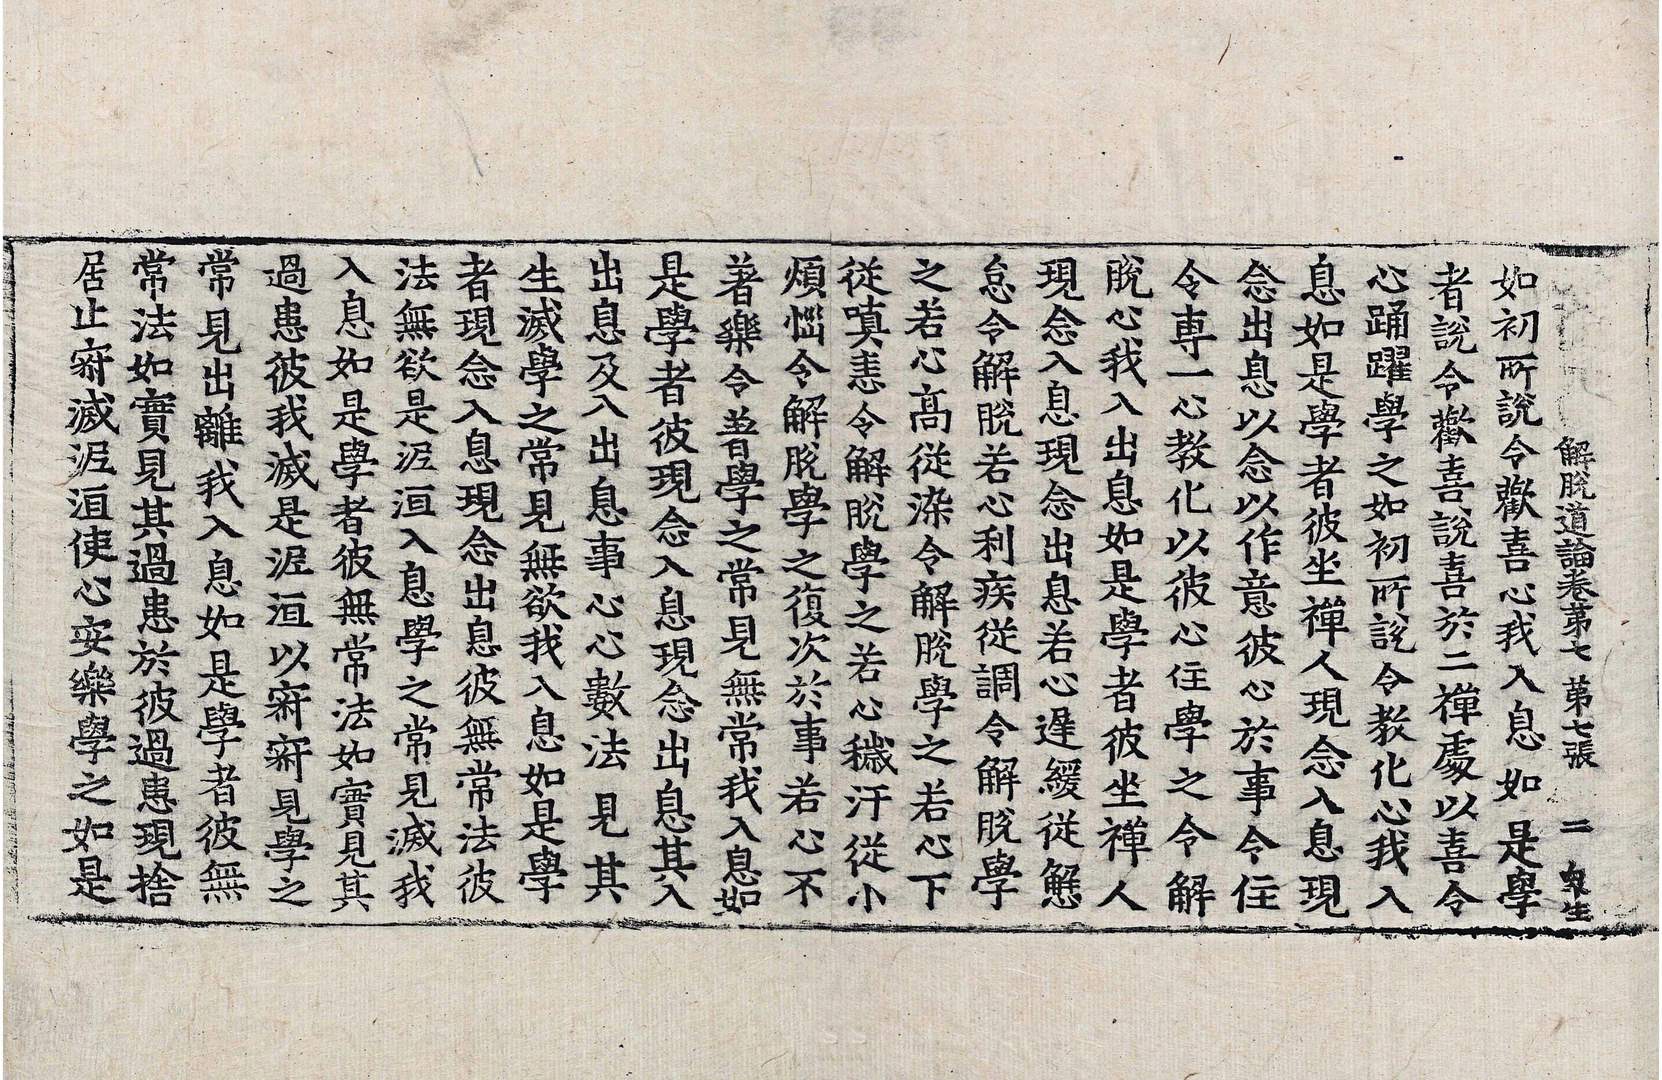 解脫道論卷第七 第七張 二
如初所說令歡喜心我入息如是學
者說令歡喜說喜於二禪處以喜令
心踊躍學之如初所說令教化心我入
息如是學者彼坐禪人現念入息現
念出息以念以作意彼心於事令住
令専一心教化以彼心住學之令解
脫心我入出息如是學者彼坐禪人
現念入息現念出息若心遲緩從懈
怠令解脫若心利疾從調令解脫學
之若心高從染令解脫學之若心下
從嗔恚令解脫學之若心穢汙從小
煩惱令解脫學之復次於事若心不
著樂令著學之常見無常我入息如
是學者彼現念入息現念出息其入
出息及入出息事心心數法見其
生滅學之常見無欲我入息如是學
者現念入息現念出息彼無常法彼
法無欲是泥洹入息學之常見滅我
入息如是學者彼無常法如實見其
過患彼我滅是泥洹以寂寂見學之
常見出離我入息如是學者彼無
常法如實見其過患於彼過患現捨
居止寂滅泥洹使心安樂學之如是